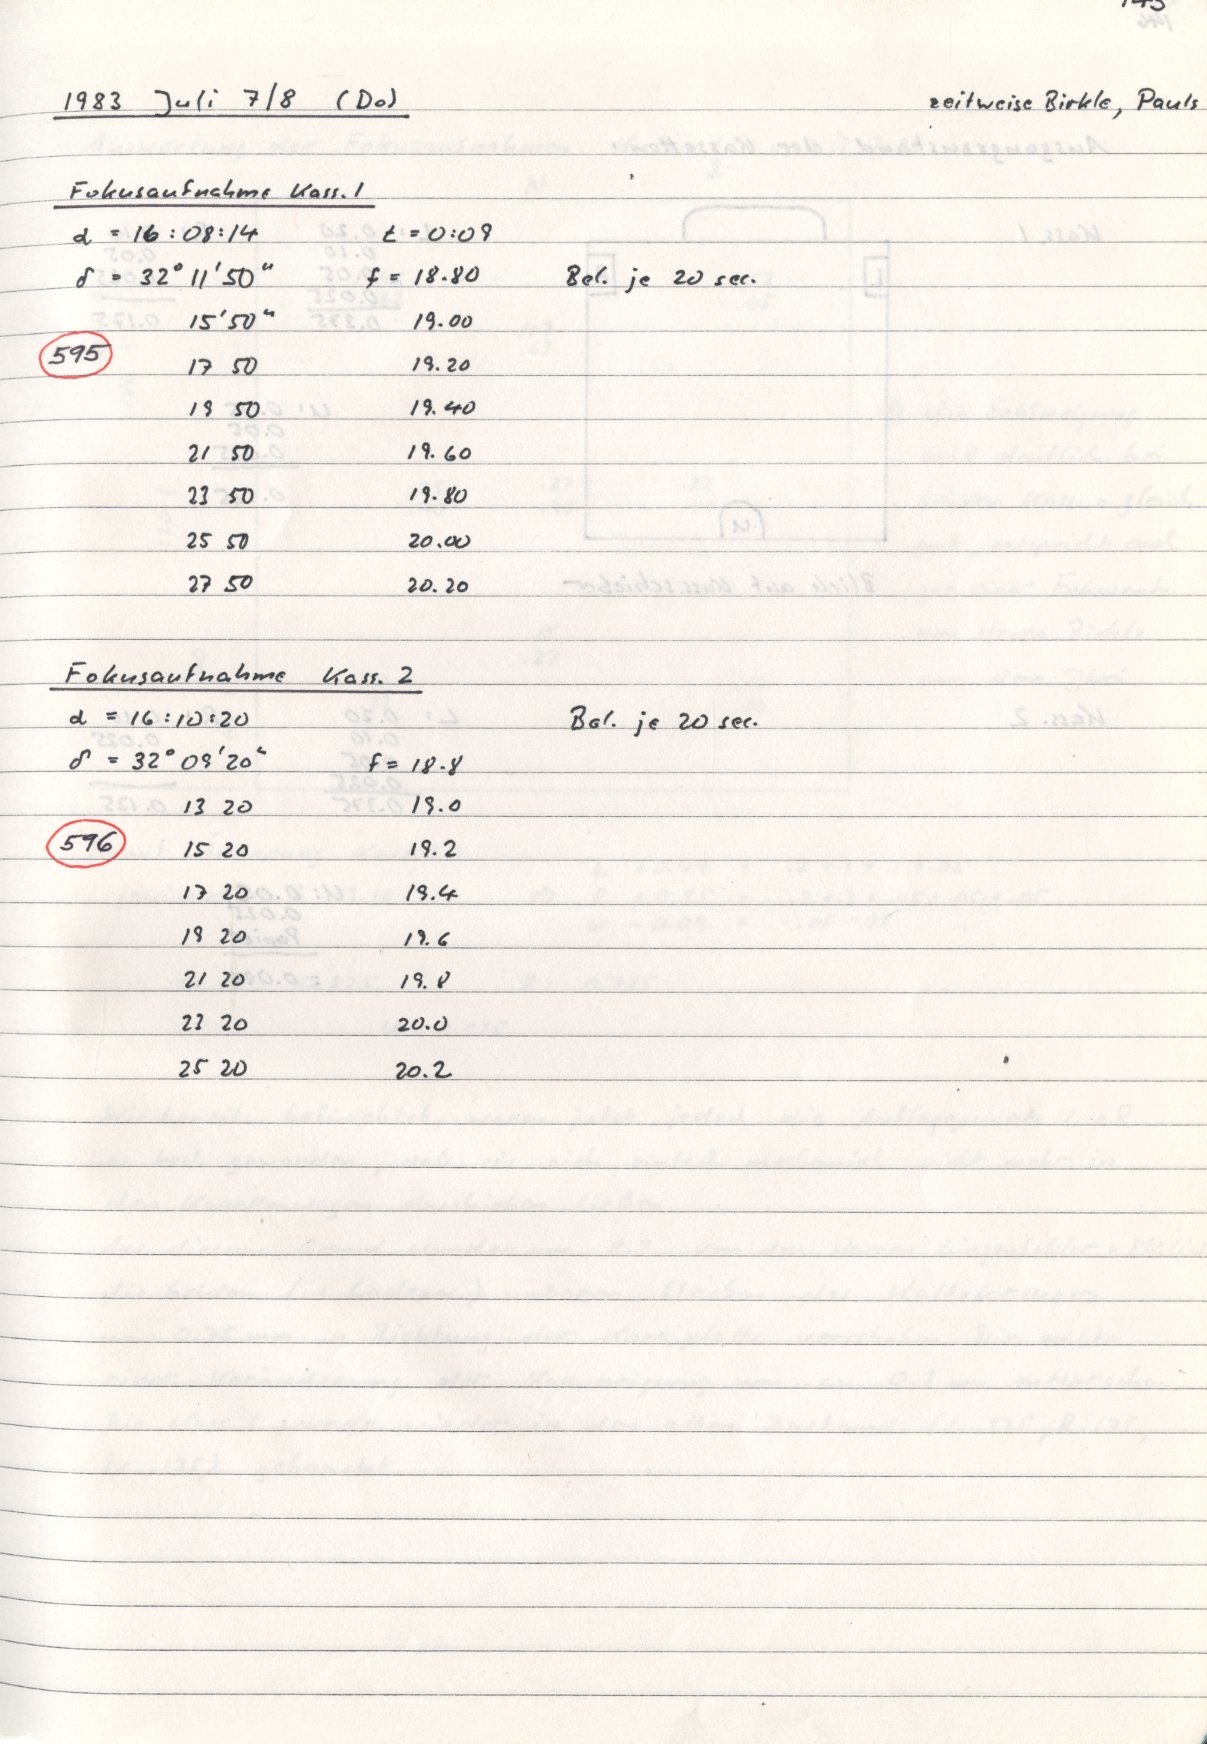 1983 Juli 7/8 (Do) zeitweise Birkle, Pauls
Fokusaufnahme Kass. 1
α = 16:08:14 t = 0:09
δ = 32° 11' 50" f = 18.80 Bel. je 20 sec.
15' 50" 19.00
595
17 50 19.20
19 50 19.40
21 50 19.60
23 50 19.80
25 50 20.00
27 50 20.20
Fokusaufnahme Kass. 2
α = 16:10:20 Bel. je 20 sec.
δ = 32° 09' 20" f = 18.8
13 20 19.0
596
15 20 19.2
17 20 19.4
19 20 19.6
21 20 19.8
23 20 20.0
25 20 20.2